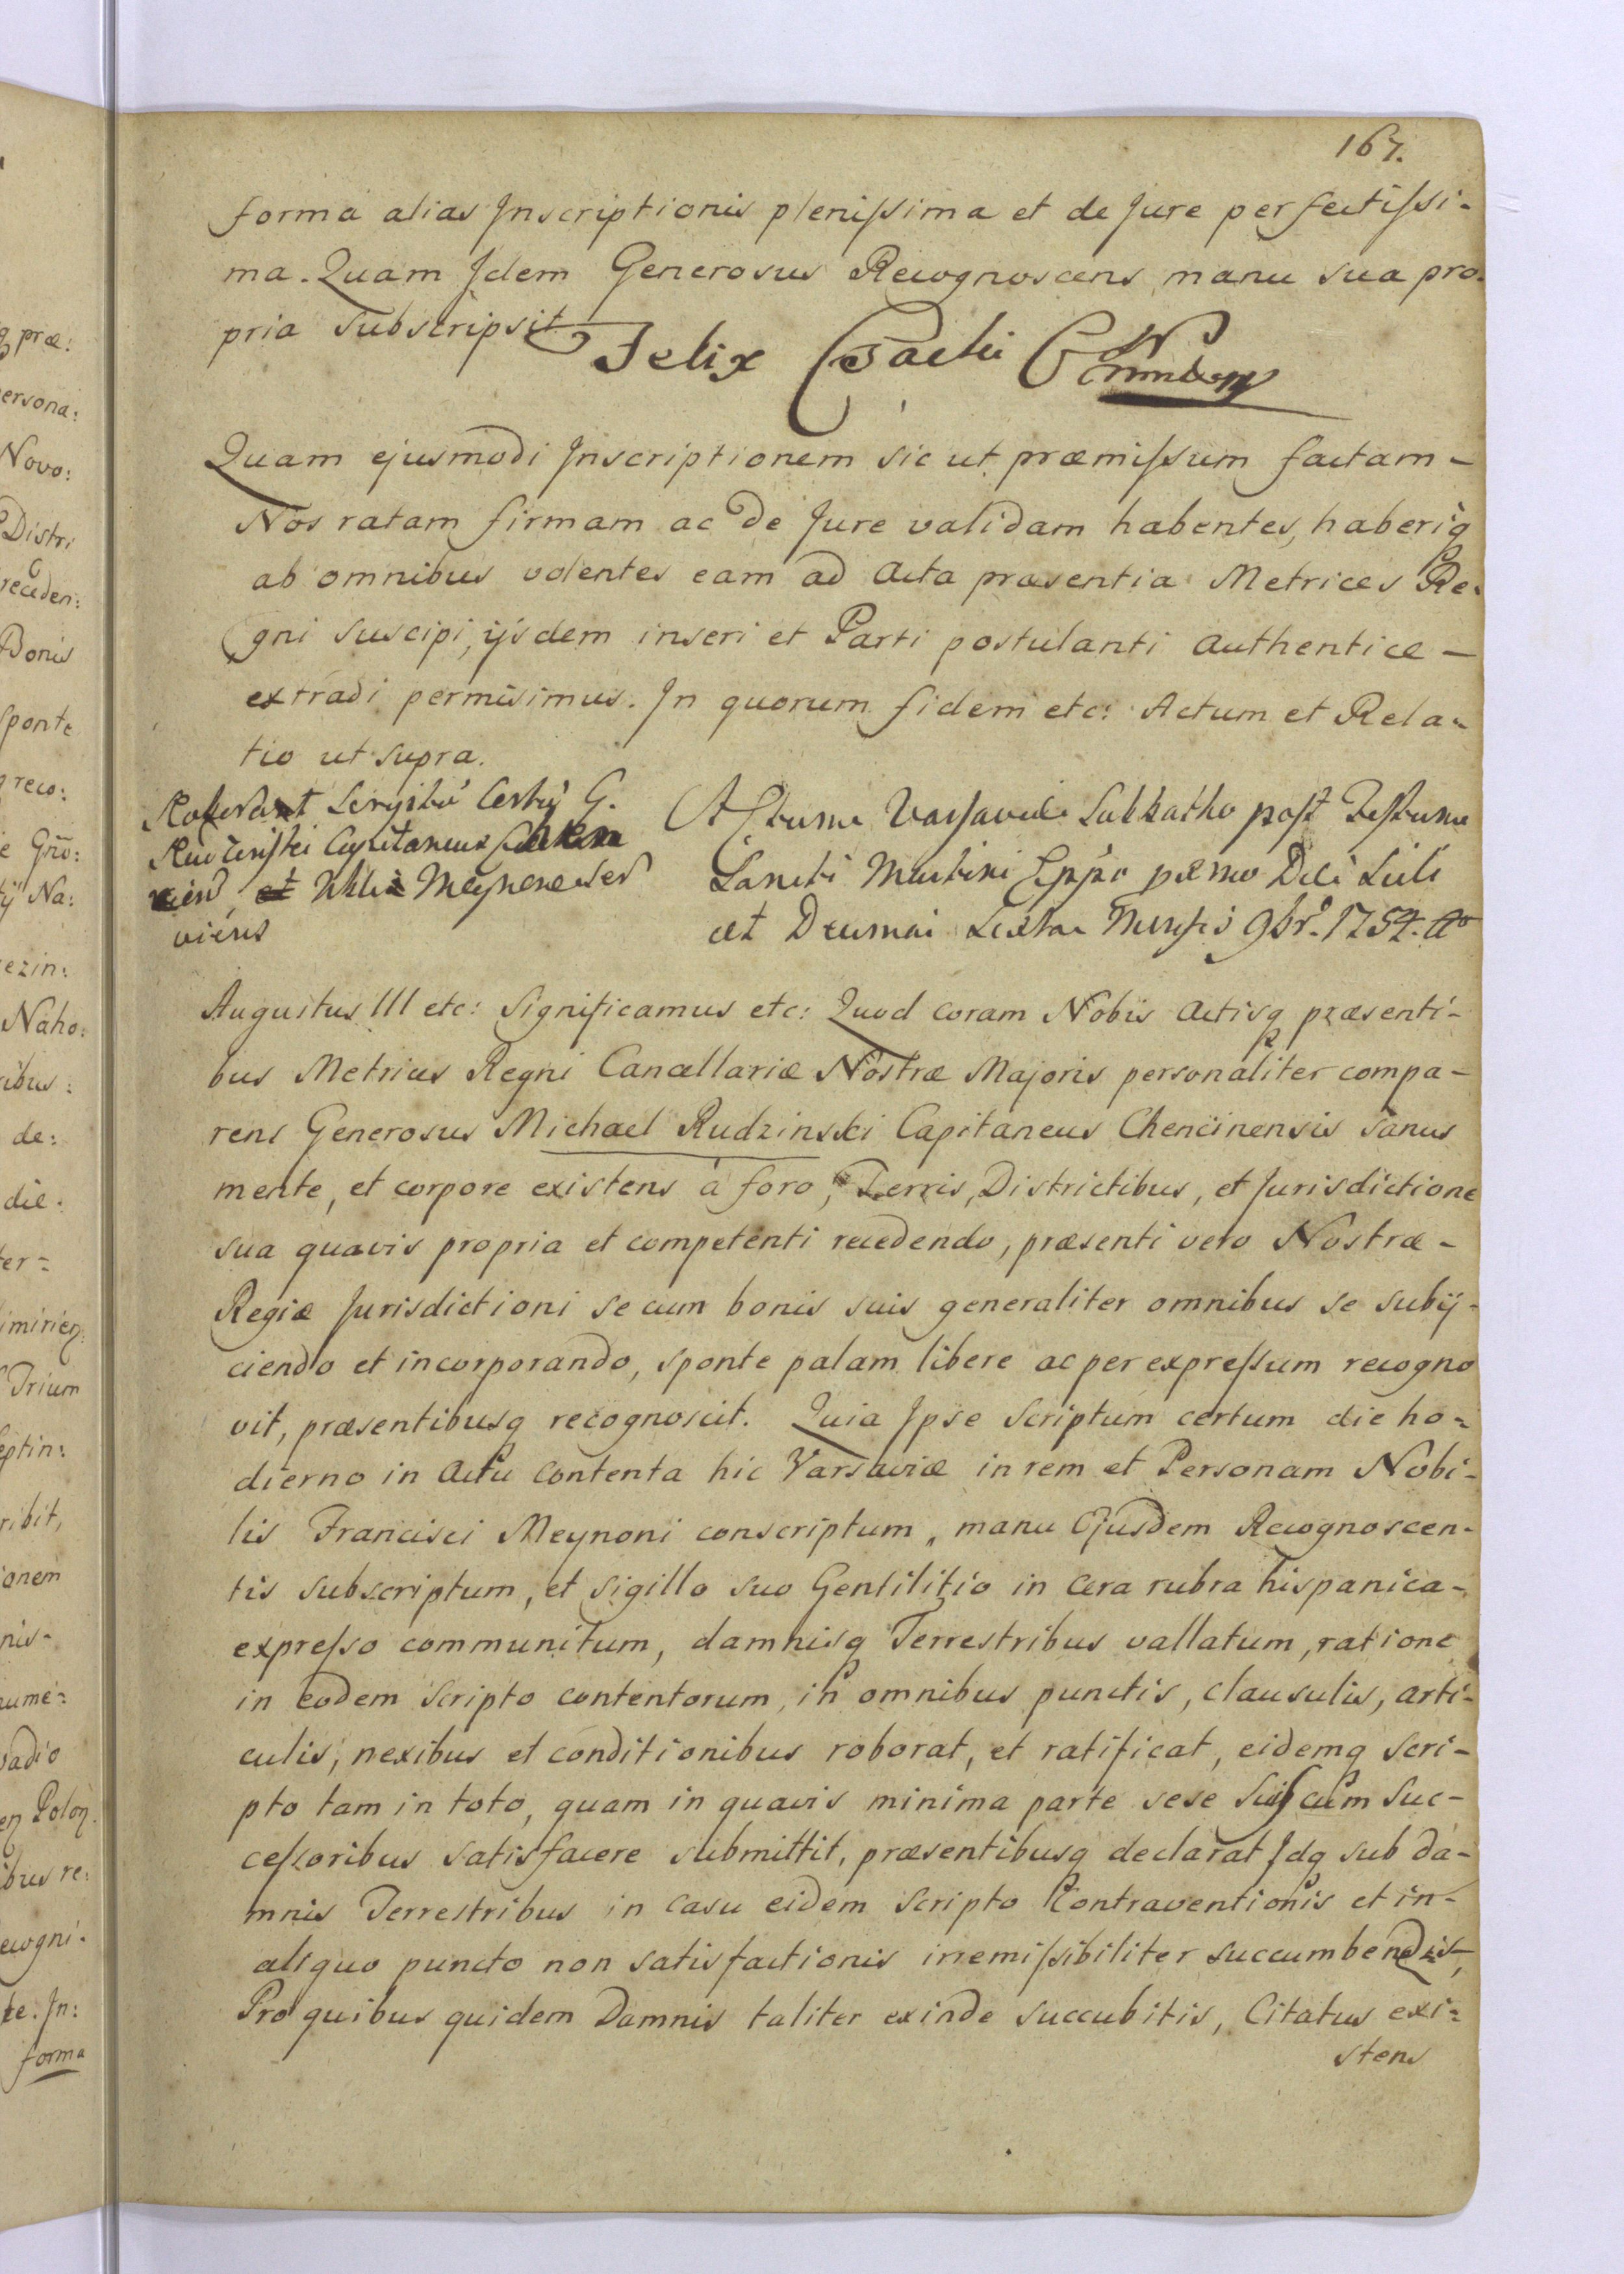 167.
forma alias Inscriptionis plenissima et de Jure perfectissi-
ma. Quam Idem Generosus Recognoscens manu sua pro-
pria subscripsit
Felix Czacki
Quam ejusmodi Inscriptionem sic ut præmissum factam-
Nos ratam firmam ac de Jure validam habentes, haberiq
ab omnibus volentes eam ad Acta præsentia Metrices Re-
gni suscipi, ijsdem inseri et Parti postulanti authentice-
extradi permisimus. In quorum fidem etc: Actum et Rela-
tio ut supra.
Roborat Scripti G.
Rudzinski Capitaneus
Actum Varsaviæ Sabbatho post Festum
Sancti Martini
Mensis 9br. 1754. Ao
Augustus III etc: Significamus etc: Quod coram Nobis Actisq præsenti-
bus Metrices Regni Cancellariæ Nostræ Majoris personaliter compa-
rens Generosus Michael Rudzinski Capitaneus Chencinensis sanus
mente, et corpore existens à foro, Terris, Districtibus, et Jurisdictione
sua quavis propria et competenti recedendo, præsenti vero Nostræ-
Regiæ Jurisdictioni se cum bonis suis generaliter omnibus se subij-
ciendo et incorporando, sponte palam libere ac per expressum recogno
vit, præsentibusq recognoscit. Quia Ipse Scriptum certum die ho-
dierno in Actu contenta hic Varsaviæ in rem et Personam Nobi-
lis Francisci Meynoni conscriptum, manu Ejusdem Recognoscen-
tis subscriptum, et sigillo suo Gentilitio in cera rubra hispanica-
expresso communitum, damnisq Terrestribus vallatum, ratione
in eodem Scripto contentorum, in omnibus punctis, clausulis, arti-
culis, nexibus et conditionibus roborat, et ratificat, eidemq Scri-
pto tam in toto, quam in quavis minima parte sese suiscum Suc-
cessoribus satisfacere submittit, præsentibusq declarat Idq sub da-
mnis Terrestribus in casu eidem Scripto Contraventionis et in-
aliquo puncto non satisfactionis irremissibiliter succumbendis,
Pro quibus quidem Damnis taliter exinde succubitis, Citatus exi-
stens